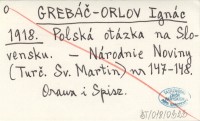 GREBÁČ-ORLOV Ignác
1918. Polská otázka na Slo-
vensku. – Národnie Noviny
(Turč. Sv. Martin) nr 147-148.
Orawa i Spisz.